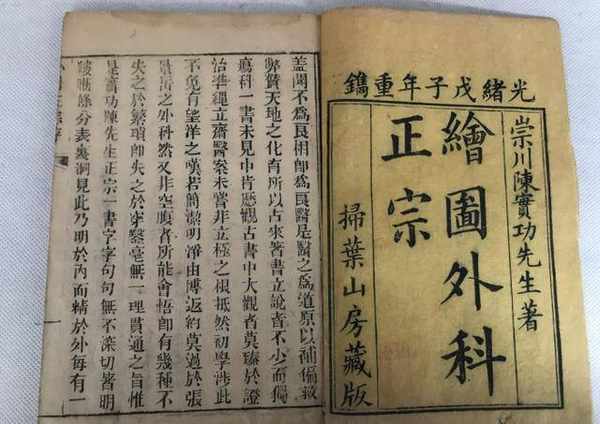 光緒戊子年重鐫
崇川陳實功先生著
繪圖外科
正宗
掃葉山房藏版
蓋聞不為良相即為良醫是醫之為道原以補偏救
弊贊天地之化育所以古來著書立說者不少而獨
瘍科一書未見中肯歷觀古書中大觀者莫臻於證
治準繩立齋醫案未嘗非立極之根抵然初學涉此
不免有望洋之嘆若簡潔明淨由博返約莫過於張
景岳之外科然又非空腹者所能會悟即有幾種不
失之於繁瑣即失之於穿鑿毫無一理貫通之旨惟
是實功陳先生正宗一書字字句句無不深切著明
縷晰條分表裏洞見此乃明於內而精於外每有一